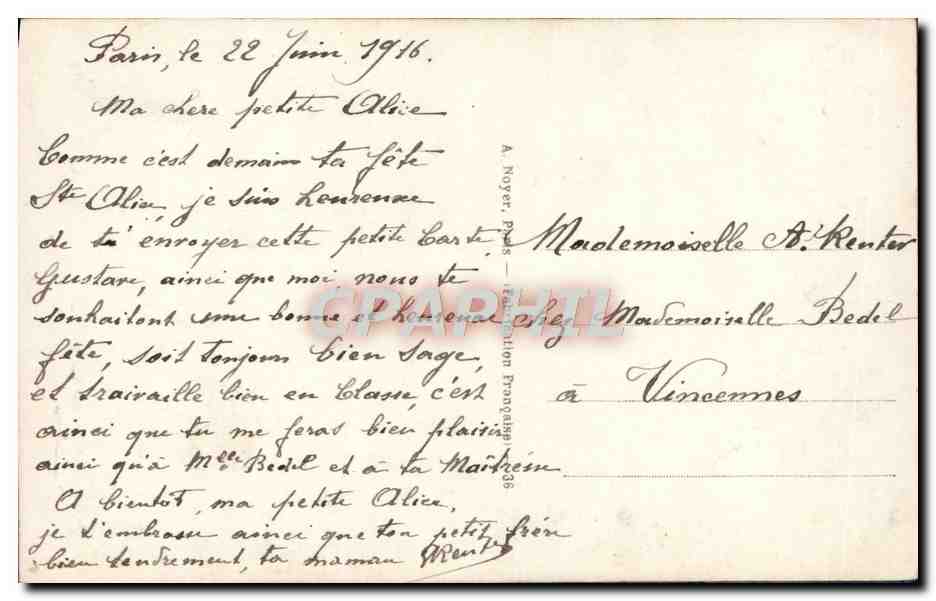 Paris, le 22 Juin 1916.
Ma chere petite Alice
Comme c'est demain ta fête
Ste Alice, je suis heureuse
de t'envoyer cette petite Carte,
Gustave, ainci que moi nous te
souhaitont une bonne et heureuse
fête, soit toujours bien sage,
et traivaille bien en Classe, c'est
ainci que tu me feras bien plaisir
ainci qu'à Melle Bedel et à ta Maîtresse
A bientôt, ma petite Alice,
je t'embrasse ainci que ton petit frère
bien tendrement, ta maman
A. Noyer, Paris — (Fabrication Française) 36
Mademoiselle A. Renter
chez Mademoiselle Bedel
à Vincennes
CPAPHIL